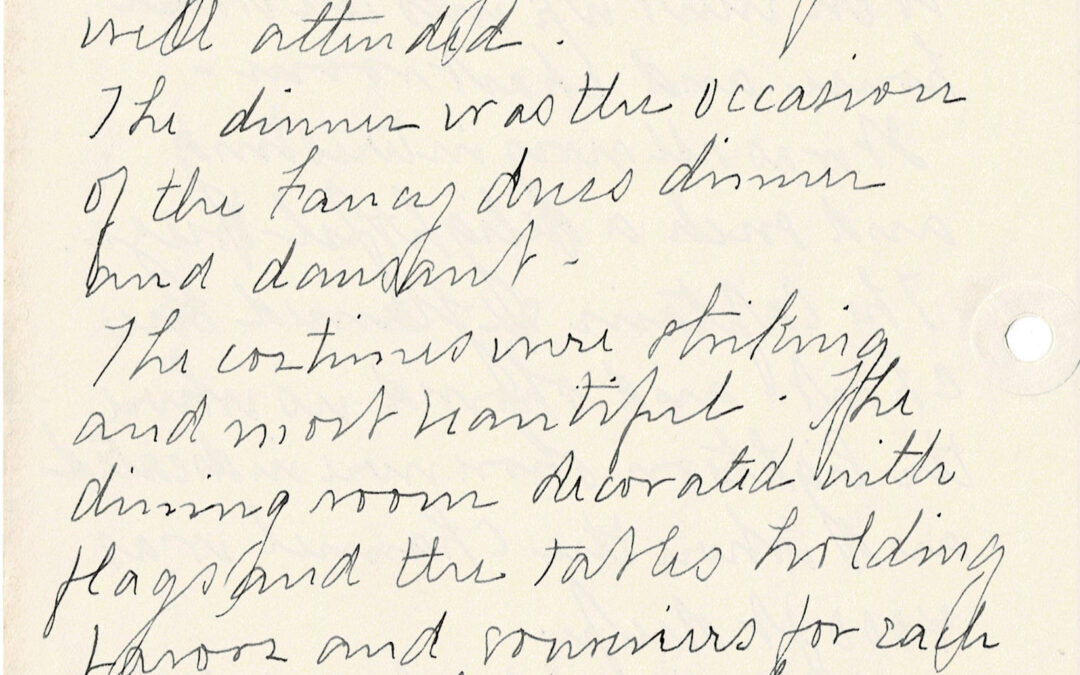 well attended.
The dinner was the occasion
of the Fancy dress dinner
and dansant -
The costumes were striking
and most beautiful. The
dining room decorated with
flags and the tables holding
favors and souvenirs for each